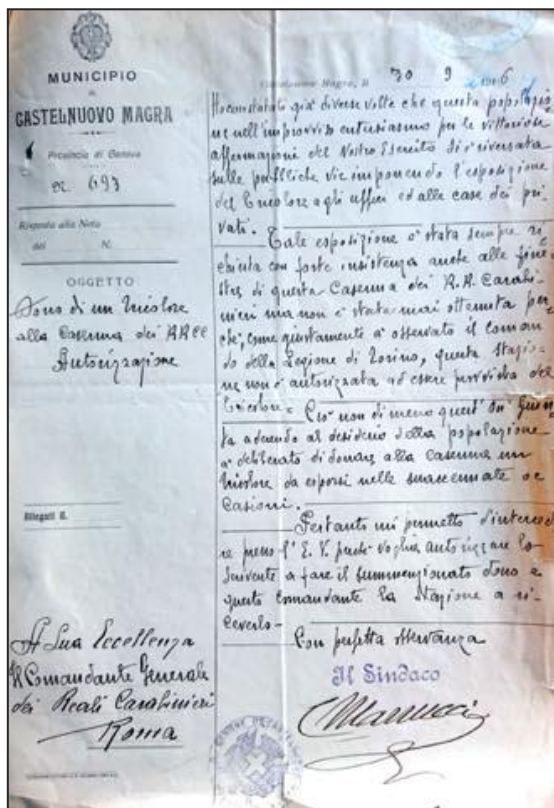 MUNICIPIO
DI
CASTELNUOVO MAGRA
Provincia di Genova
N. 693
Risposta alla Nota
del N.
OGGETTO
Dono di un tricolore
alla Caserma dei RRCC
Autorizzazione
Allegati N.
A Sua Eccellenza
Il Comandante Generale
dei Reali Carabinieri
Roma
Castelnuovo Magra, li 30 9 1916
Ho constatato già diverse volte che questa popolazio
ne nell'improvviso entusiasmo per le vittoriose
affermazioni del Nostro Esercito si è riversata
sulle pubbliche vie imponendo l'esposizione
del tricolore agli uffici ed alle case dei pri
vati.
Tale esposizione è stata sempre ri
chiesta con forte insistenza anche alle fine
stre di questa Caserma dei R.R. Carabi
nieri ma non è stata mai ottenuta per
chè, come giustamente à osservato il coman
do della Legione di Torino, questa stazio
ne non è autorizzata ad essere provvista del
tricolore. Ciò non di meno quest' On. Giun
ta aderendo al desiderio della popolazione
à deliberato di donare alla caserma un
tricolore da esporsi nelle suaccennate oc
casioni.
Pertanto mi permetto d'interessa
re presso l'E. V. perchè voglia autorizzare lo
scrivente a fare il summenzionato dono e
questo comandante la Stazione a ri
ceverlo.
Con perfetta osservanza
Il Sindaco